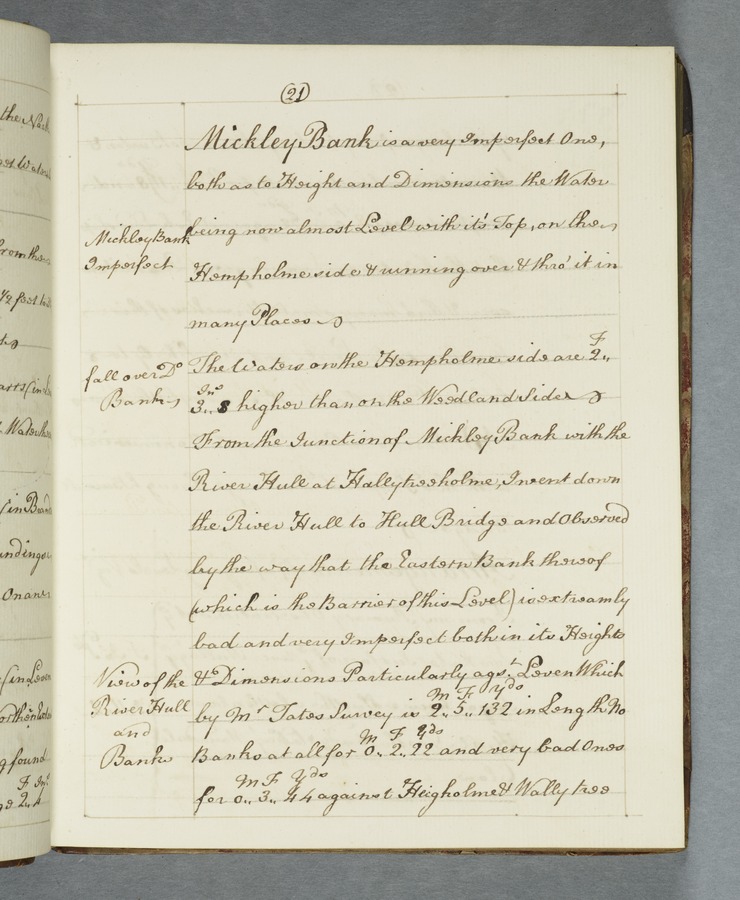 the
from the
1/2 feet
Water
On an
found
F In.s
2,, 4
21
Mickley Bank is a very Imperfect One,
both as to Height and Dimensions the Water
Mickley Bank
being now almost Level with it's Top, on the
Imperfect
Hempholme side & running over & thro' it in
many Places
fall over Do
The Waters on the Hempholme side are 2,, F
Bank
3,, Ins 8 higher than on the Weedland Side
From the Junction of Mickley Bank with the
River Hull at Hallytreeholme, I went down
the River Hull to Hull Bridge and Observed
by the way that the Eastern Bank thereof
(which is the Barrier of this Level) is extreamly
bad and very Imperfect both in its Heights
View of the
& Dimensions Particularly agst Leven Which
River Hull
M F Yds
by Mr Tates Survey is 2,, 5,, 132 in Length No
and
M F Yds
Banks
Banks at all for 0,, 2,, 22 and very bad Ones
M F Yds
for 0,, 3,, 44 against Heigholme & Wallytree